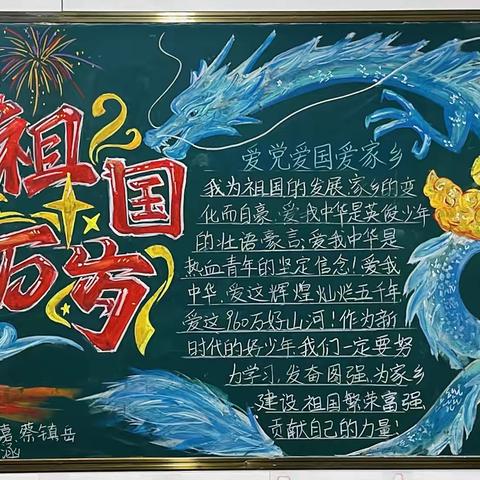 祖国
万岁
爱党爱国爱家乡
我为祖国的发展、家乡的变
化而自豪、爱我中华是英俊少年
的壮语豪言、爱我中华是
热血青年的坚定信念！爱我
中华、爱这辉煌灿烂五千年、
爱这960万好山河！作为新
时代的好少年、我们一定要努
力学习、发奋图强、为家乡
建设、祖国繁荣富强
贡献自己的力量！
嘉、蔡镇岳
涵